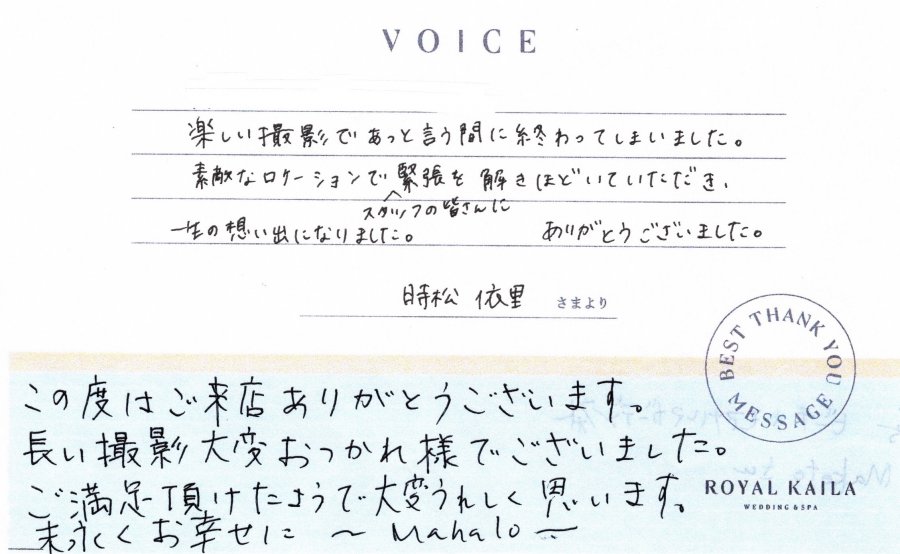 VOICE
楽しい撮影であっと言う間に終わってしまいました。
素敵なロケーションで緊張を解きほどいていただき、
スタッフの皆さんに
一生の想い出になりました。 ありがとうございました。
時松 依里 さまより
BEST THANK YOU MESSAGE
この度はご来店ありがとうございます。
長い撮影大変おつかれ様でございました。
ご満足頂けたようで大変うれしく思います。
ROYAL KAILA
WEDDING & SPA
末永くお幸せに 〜 Mahalo 〜